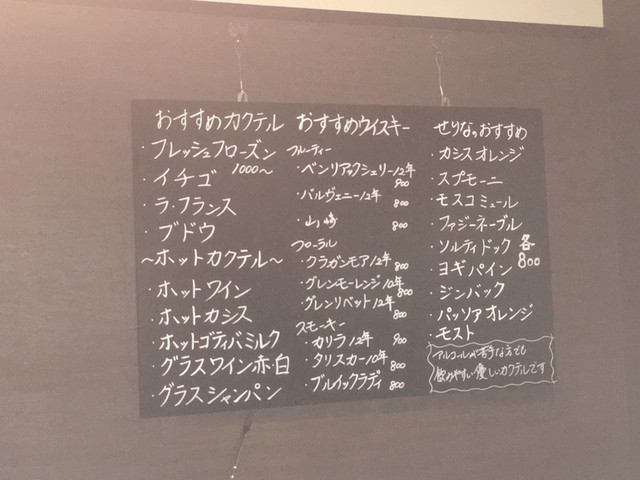 おすすめカクテル
・フレッシュフローズン
1000〜
・イチゴ
・ラ・フランス
・ブドウ
〜ホットカクテル〜
・ホットワイン
・ホットカシス
・ホットゴディバミルク
・グラスワイン赤・白
・グラスシャンパン
おすすめウイスキー
フルーティー
・ベンリアックシェリー12年
900
・バルヴェニー12年
800
・山崎 800
フローラル
・クラガンモア12年
800
・グレンモーレンジ10年
800
・グレンリベット12年
800
スモーキー
・カリラ12年 900
・タリスカー10年
800
・ブルイックラディ 800
せりなのおすすめ
・カシスオレンジ
・スプモーニ
・モスコミュール
・ファジーネーブル
・ソルティドック 各
・ヨギパイン 800
・ジンバック
・パッソアオレンジ
・モスト
アルコールが苦手な方でも
飲みやすい優しいカクテルです